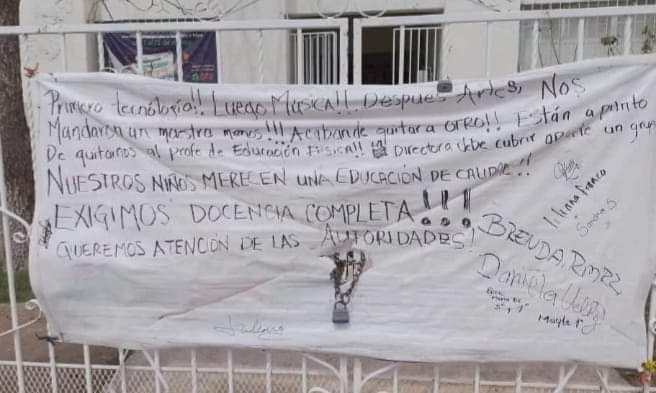 Primero tecnología!! Luego Musica!!. Despues Artes, Nos
Mandaron un maestro menos!!! Acaban de quitar a OTRO!! Están a punto
De quitarnos al profe de Educación Fisica!! La Directora debe cubrir aparte un grupo
NUESTROS NIÑOS MERECEN UNA EDUCACIÓN DE CALIDAD!!
EXIGIMOS DOCENCIA COMPLETA!!!
QUEREMOS ATENCIÓN DE LAS AUTORIDADES!
Iliana Franco
Sandra S.
BRENDA. RMRZ
Daniela
Mayte